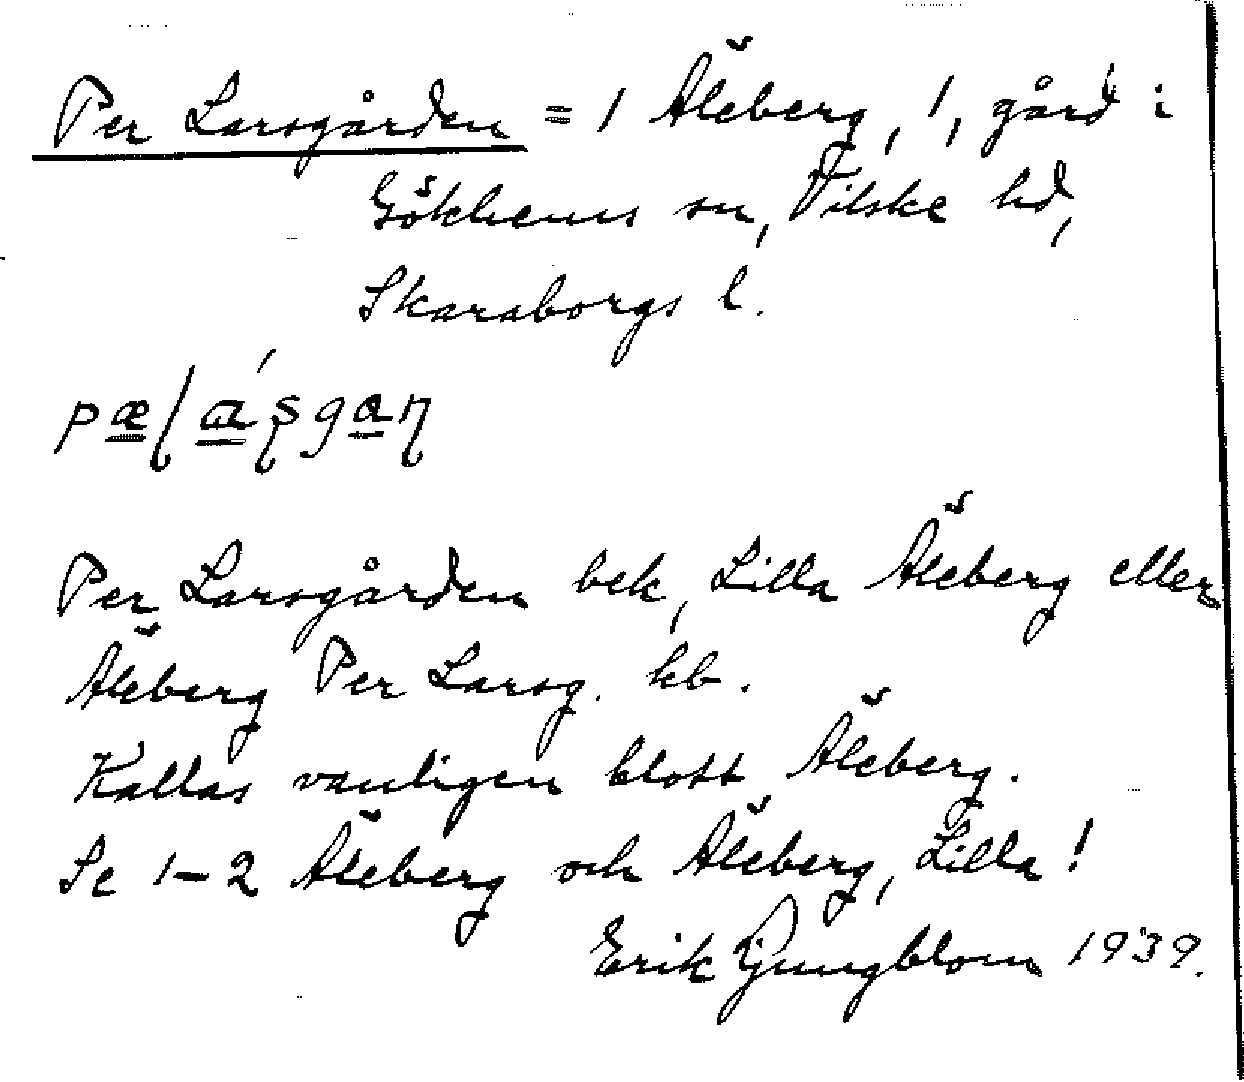 Per Larsgården = 1 Åleberg, 1, gård i
Gökhems sn, Vilske hd,
Skaraborgs l.
Per Larsgården bek, Lilla Åleberg eller
Åleberg Per Larsg. kb.
Kallas vanligen blott Åleberg.
Se 1-2 Åleberg och Åleberg, Lilla!
Erik Ljungblom 1939.